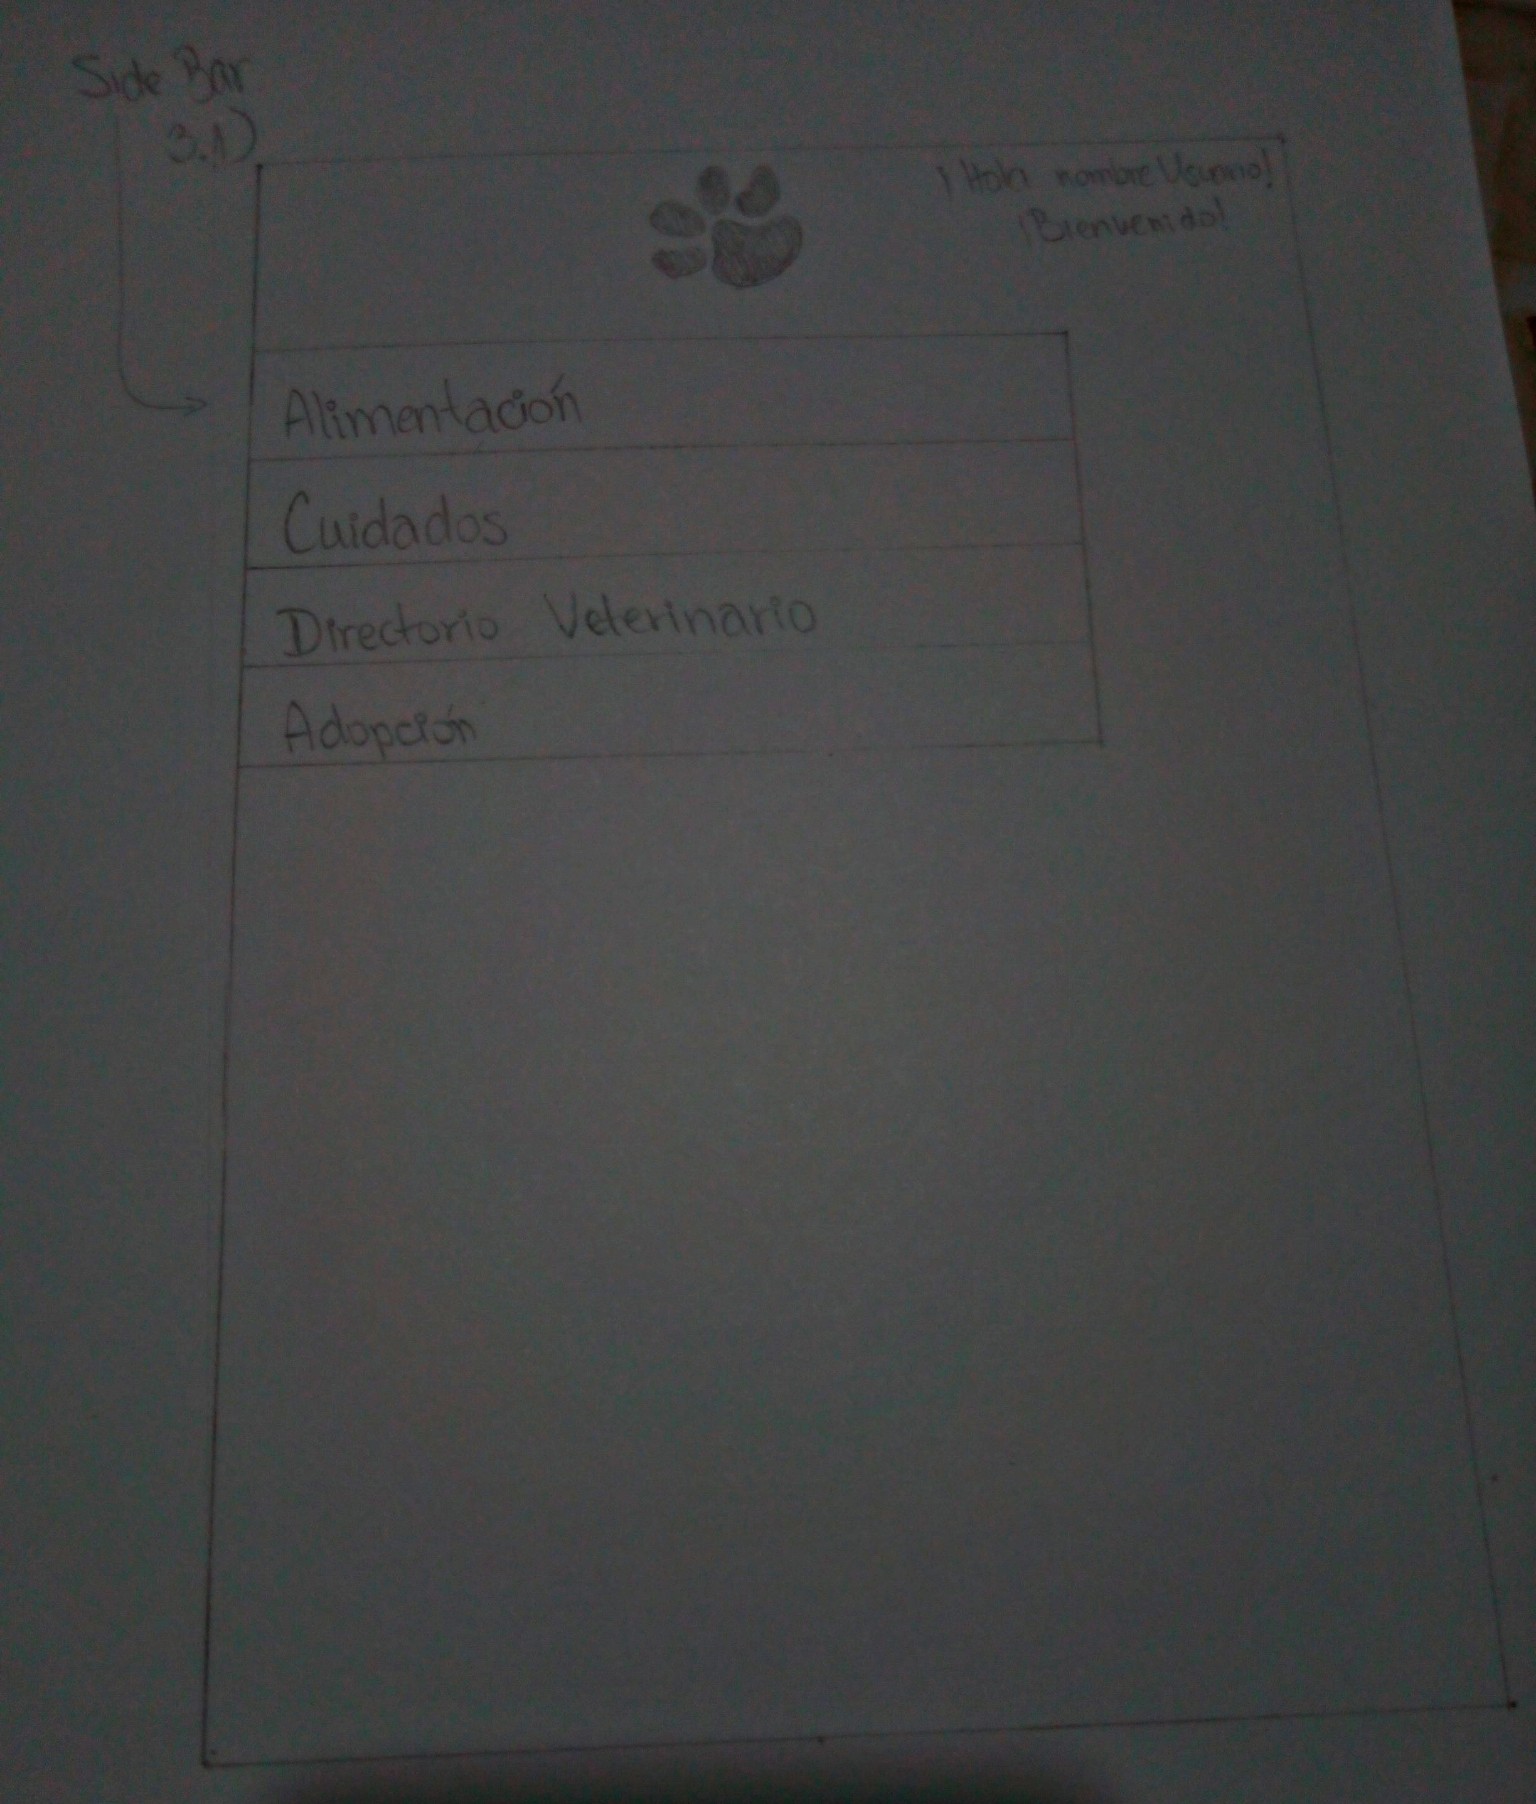 Side Bar
3.1)
¡Hola nombre Usuario!
¡Bienvenido!
Alimentación
Cuidados
Directorio Veterinario
Adopción